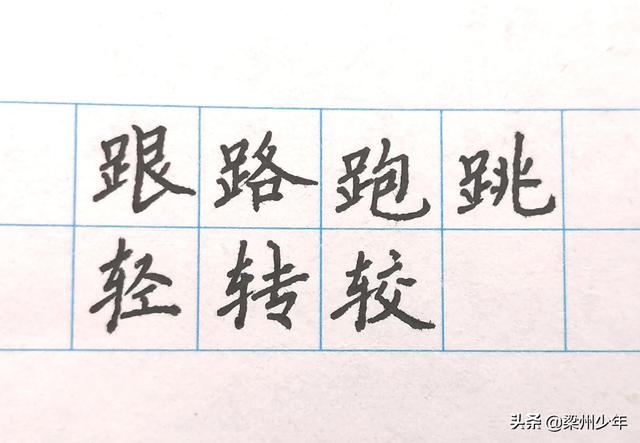 跟路跑跳
轻转较
头条 @梁州少年